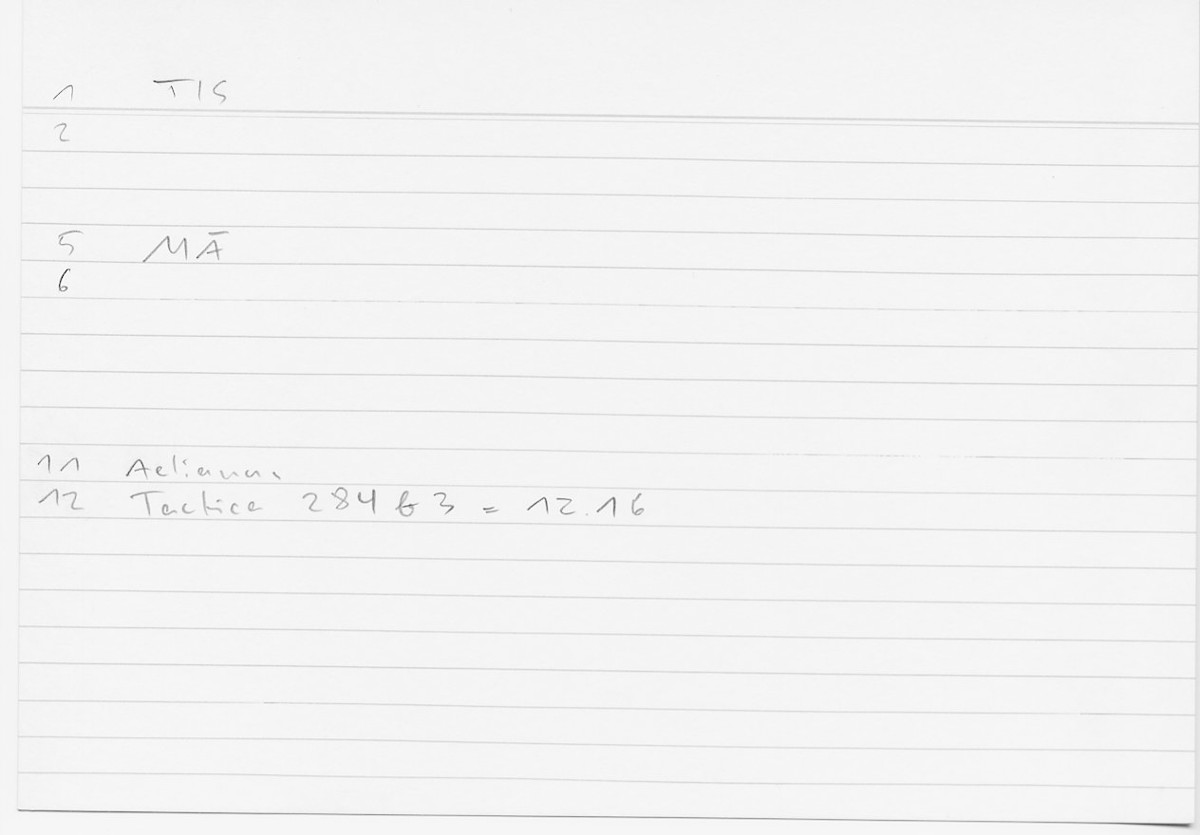 1 TIS
2
5 MĀ
6
11 Aelianus
12 Tactica 284 b 3 = 12.16